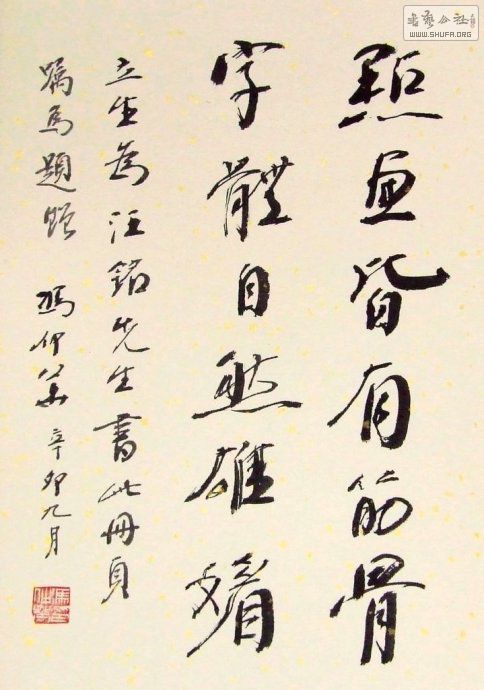 點畫皆有筋骨
字體自然雄媚
立生為汪銘先生書此冊頁
囑為題 馮仲華 辛卯九月
書藝公社
WWW.SHUFA.ORG